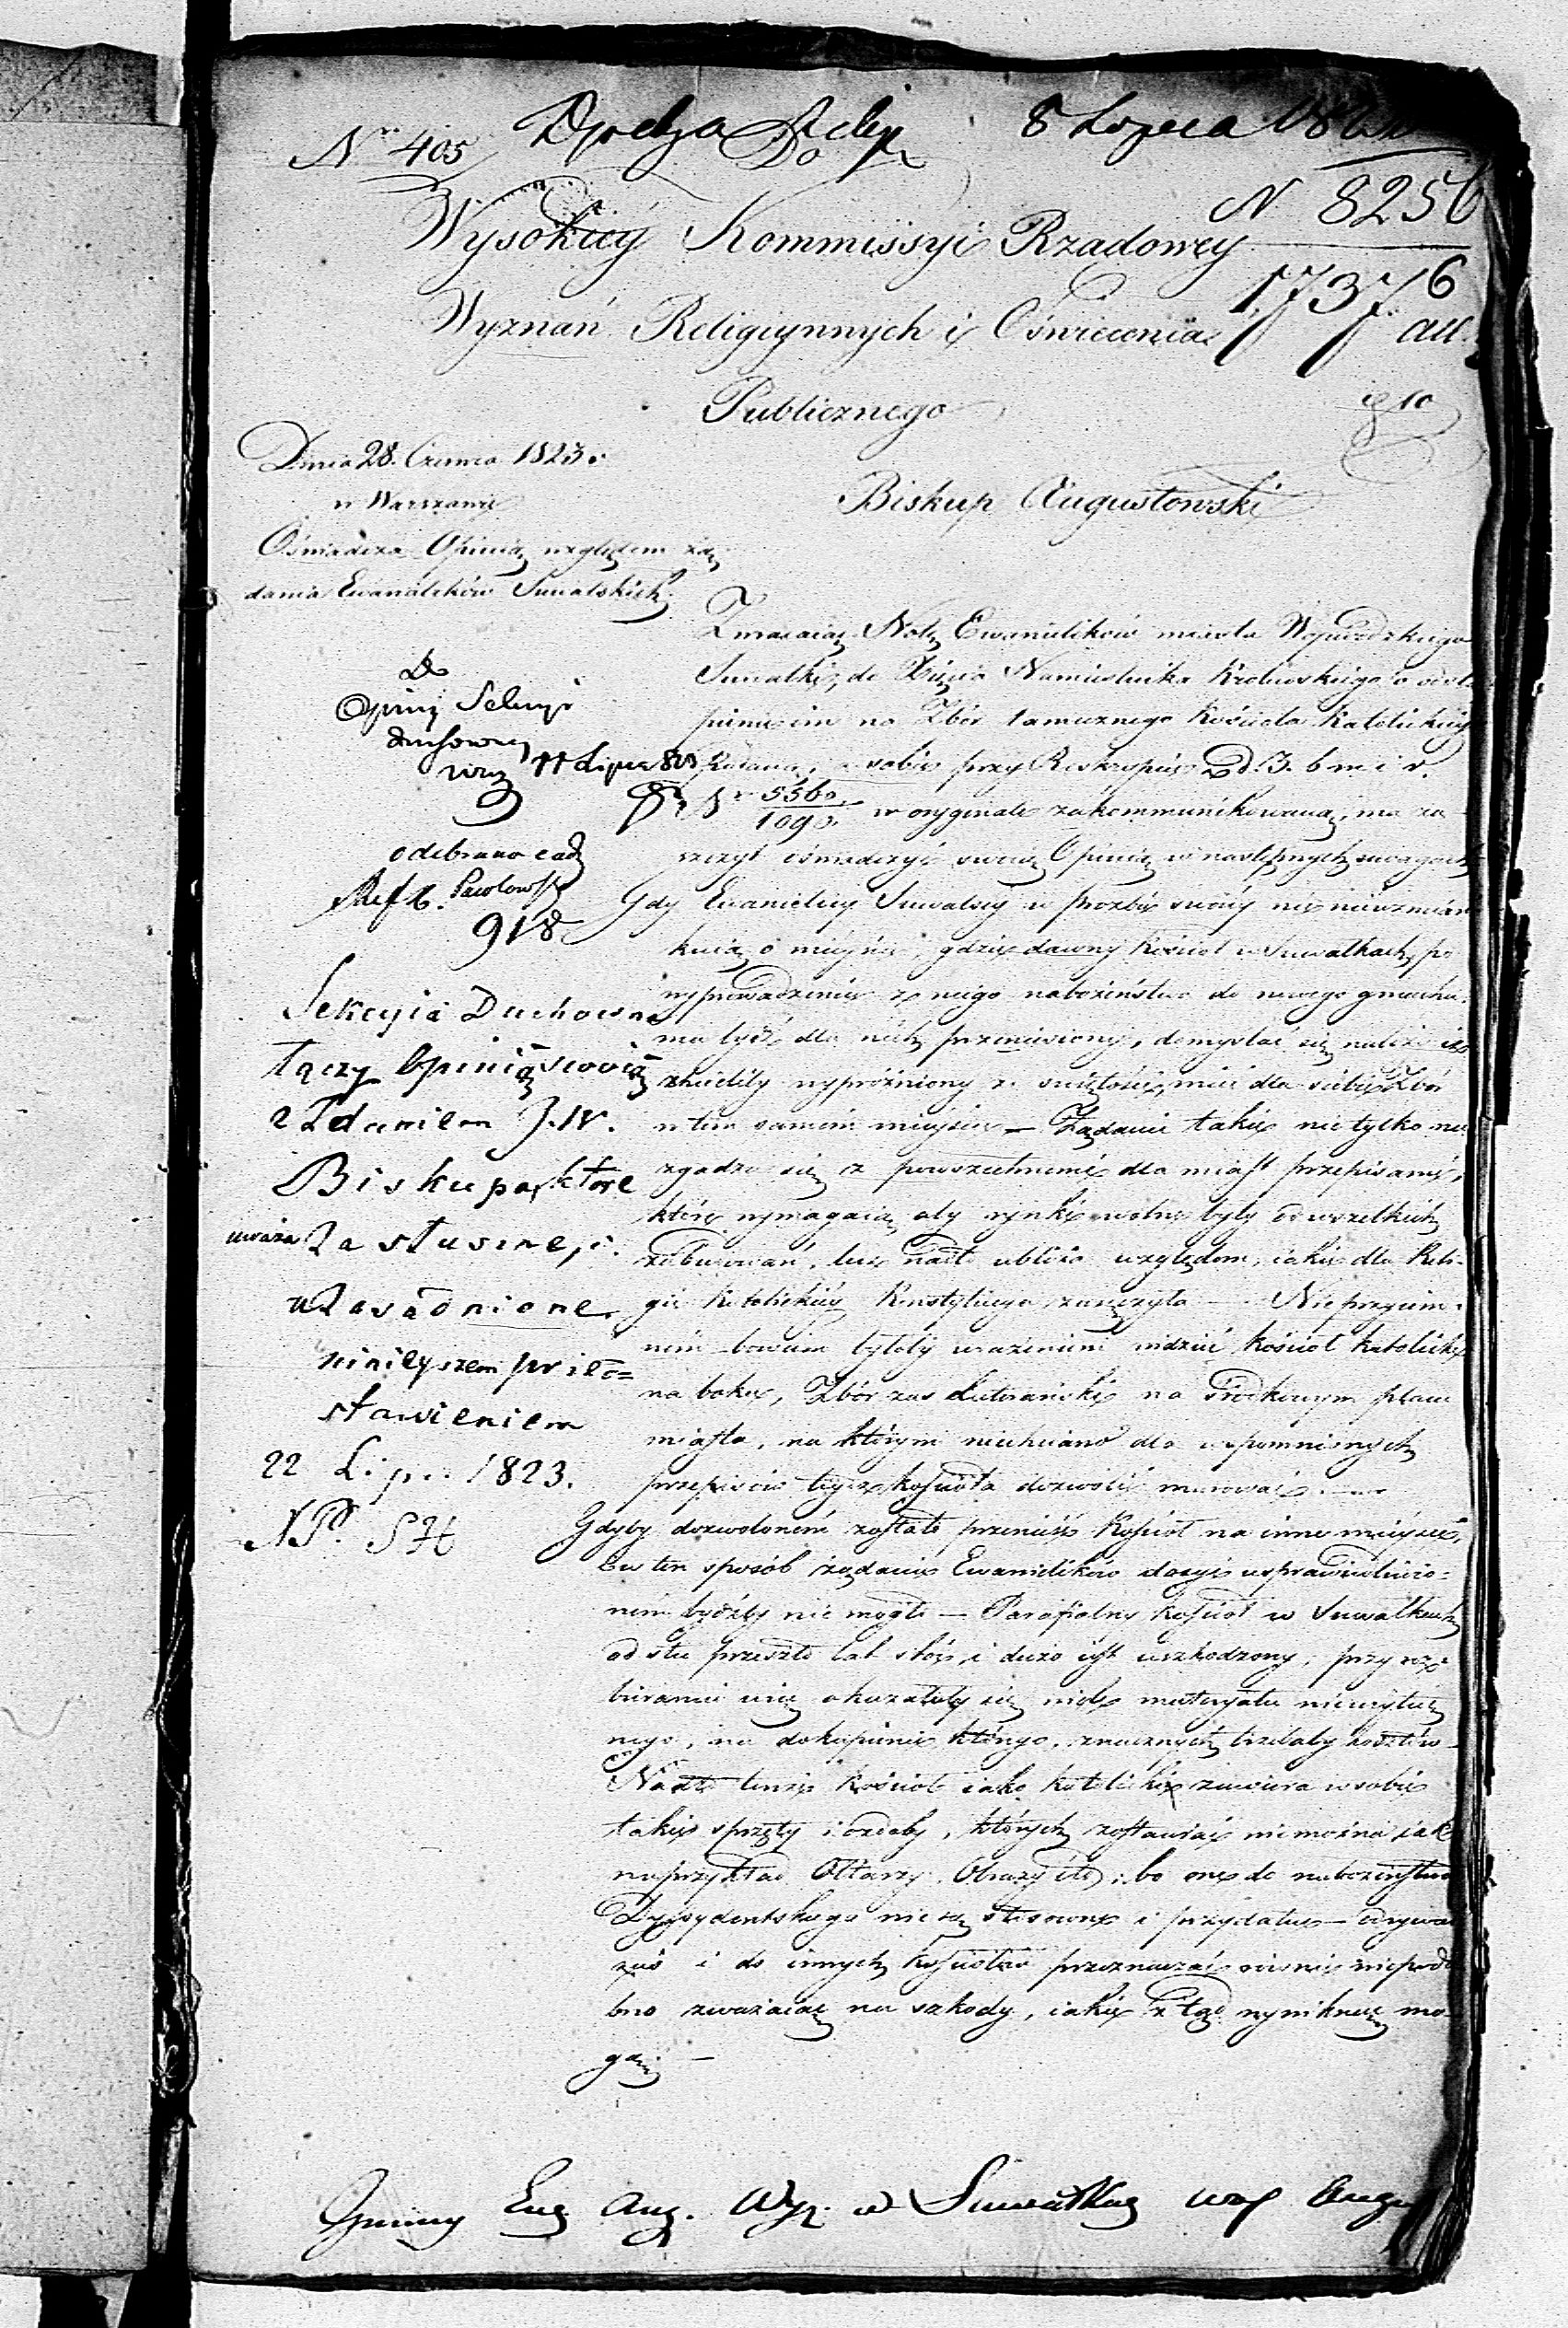 Nr 405
Do
8 Lipca
N 8256
17376
Wysokiey Kommissyi Rządowey
Wyznań Religiynnych i Oświecenia
Publicznego
Dnia 28. Czerwca 1823 r.
w Warszawie
Biskup Augustowski
Oświadcza Opinią względem żą
dania Ewanielików Suwalskich
Do
Opinij Sekcyi
duchowney
11 Lipca
odebrano
918
Sekcyia Duchowna
łączy Opinią swoią
z Zdaniem J.W.
Biskupa, które
uważa za słuszne, i
uzasadnione
ninieyszem przed=
stawieniem
22 Lip. 1823.
Zwracaiąc Notę Ewanielików miasta Woiewodzkiego
Suwałki, do Xięcia Namiestnika Królewskiego o odstą
pienie im na Zbór tamecznego Kościoła Katolickiey
podaną, a sobie przy Reskrypcie d. 3. b m i r.
Nr 5560/1090 w oryginale zakommunikowaną, ma za
szczyt oświadczyć swoią Opinią w następnych uwagach
Gdy Ewanielicy Suwalscy w prozbie swoiey nic niewzmian
kuią o mieyscu, gdzie dawny Kościół w Suwałkach, po
wyprowadzeniu z niego nabożeństwa do nowego gmachu,
ma być dla nich przeniesiony, domyślać się należy iż
chcieliby wypróżniony ze świętości, mieć dla siebie Zbór
w tem samem mieyscu — Żądanie takie nie tylko nie
zgadza się z powszechnemi dla miast przepisami,
które wymagaią aby rynki wolne były od wszelkich
zabudowań, lecz nadto ubliża względom, iakie dla Reli=
gii Katolickiey Konstytucya zaręczyła — Nieprzyiem=
nem bowiem byłoby wrażeniem widzieć Kościół Katolicki
na boku, Zbór zaś Luterański na środkowym placu
miasta, na którym niechciano dla wspomnionych
przepisów tegoż kościoła dozwolić murować. —
Gdyby dozwolonem zostało przenieść Kościół na inne mieysce,
i w ten sposób żądanie Ewanielików dosyć usprawiedliwio=
nem bydźby nie mogło — Parafialny kościół w Suwałkach
od stu przeszło lat stoi, i dużo iest uszkodzony, przy roz
bieraniu więc okazałoby się wiele materyału nieużytecz
nego, na dokupienie którego, znacznych trzebaby kosztów
Nadto tenże Kościół iako katolicki zawiera w sobie
takie sprzęty i ozdoby, których zostawiać nie można iak
naprzykład Ołtarzy, Obrazy etc; bo one do nabożeństwa
Dyssydentskiego nie są stosowne i przydatne — odrywać
zaś i do innych kościołów przeznaczać niepodo
bno zważaiąc na szkody, iakie ztąd wyniknąć mo
gą —
Gminy Ewg. Aug. Wyz. w Suwałkach